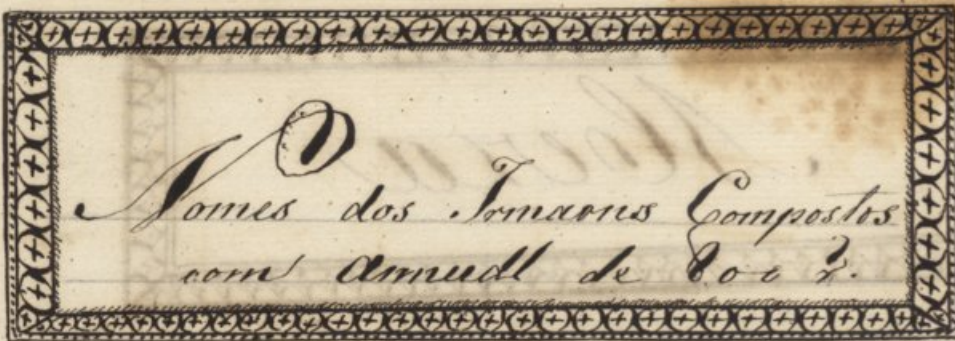 Nomes dos Irmaons Compostos
com Annuadl de 800 r.